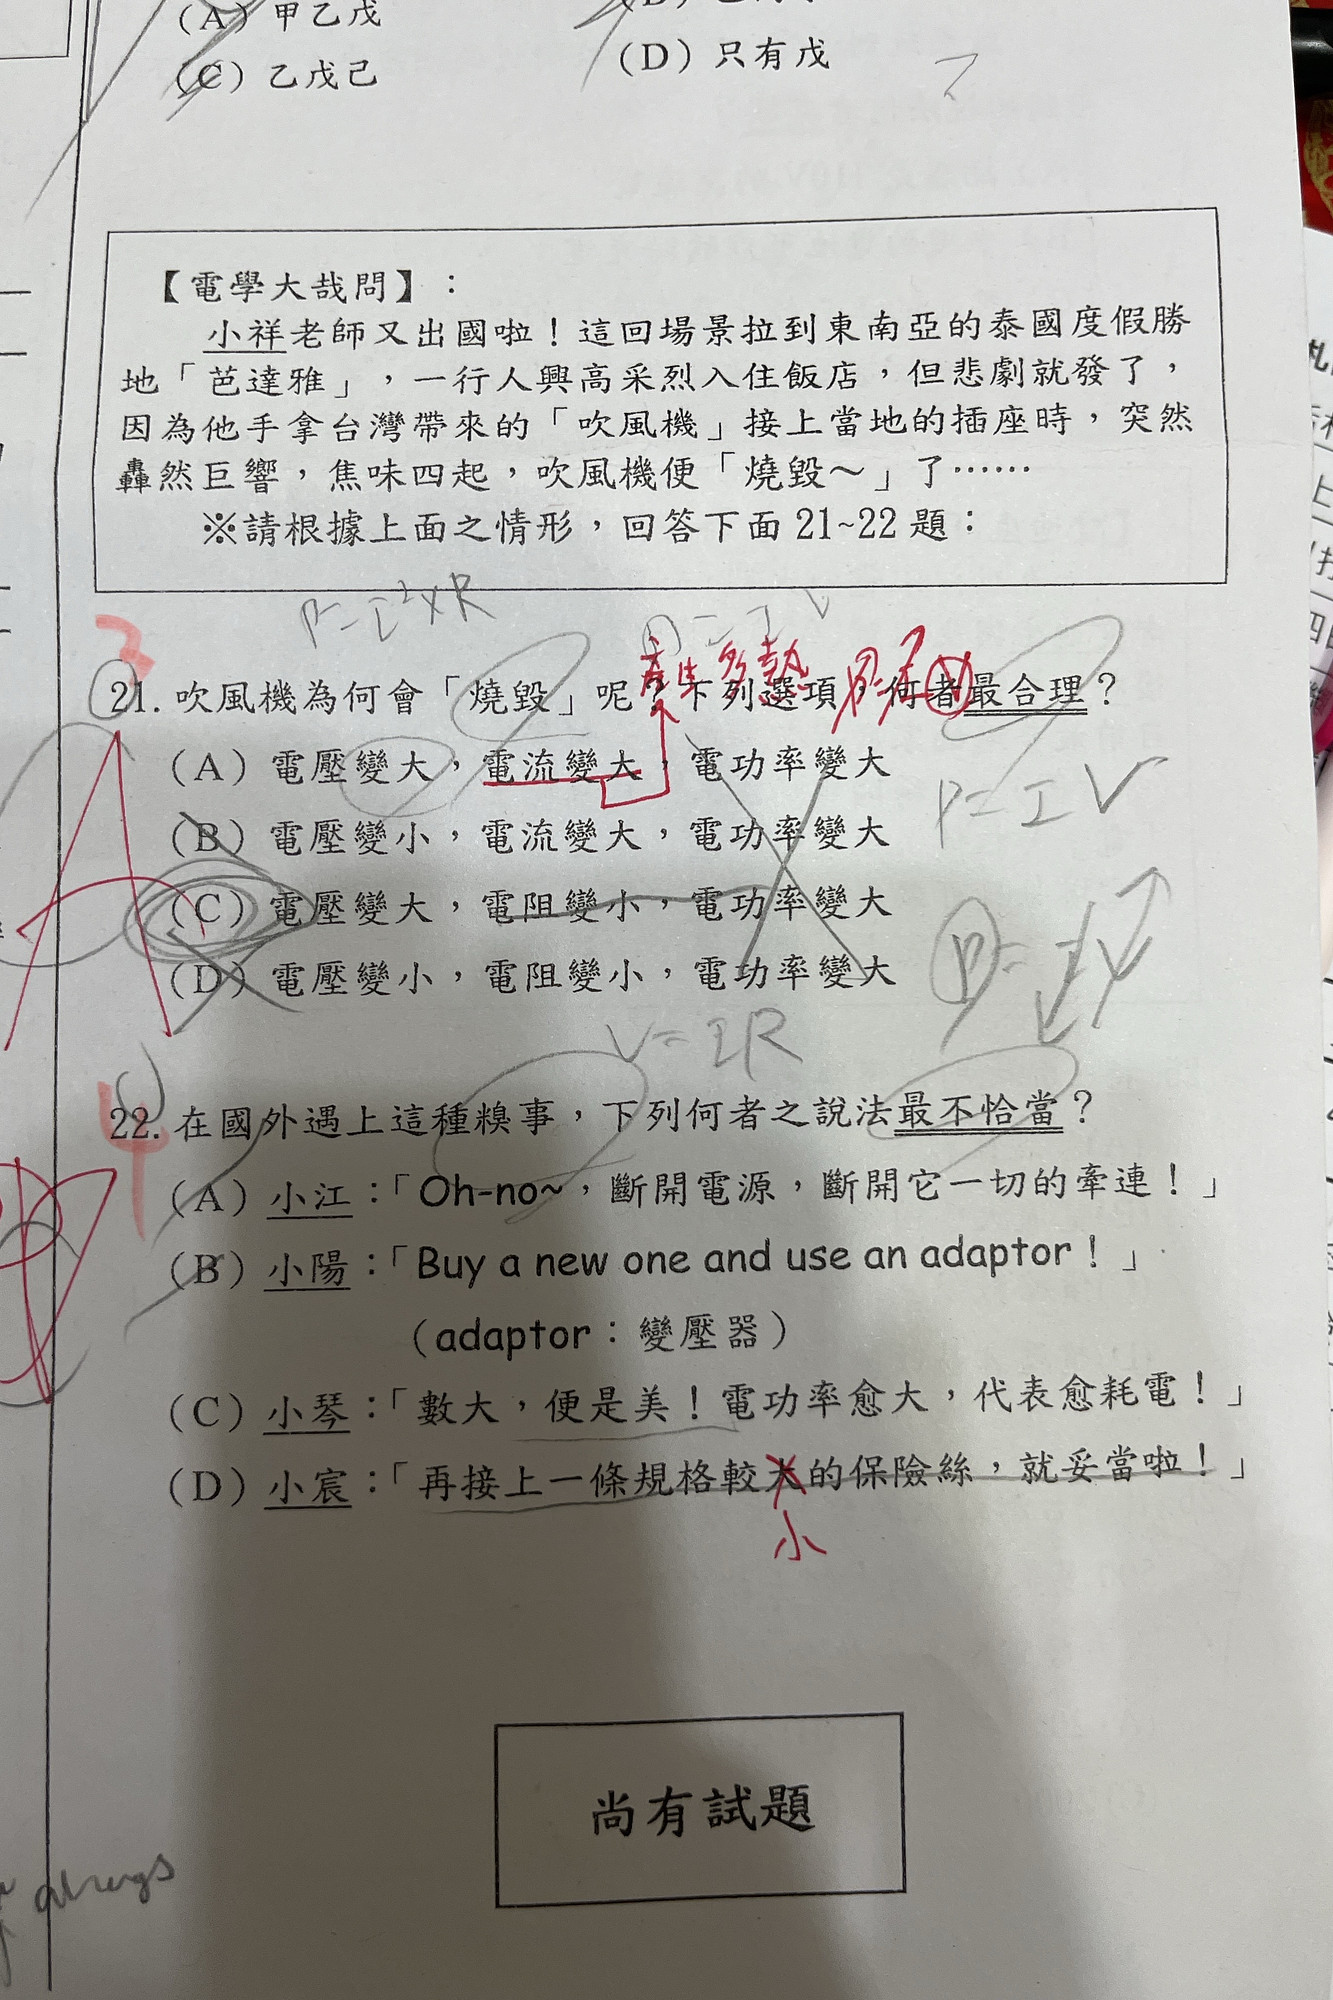 (A) 甲乙戊
(C) 乙戊己
(D) 只有戊
【電學大哉問】：
小祥老師又出國啦！這回場景拉到東南亞的泰國度假勝
地「芭達雅」，一行人興高采烈入住飯店，但悲劇就發了，
因為他手拿台灣帶來的「吹風機」接上當地的插座時，突然
轟然巨響，焦味四起，吹風機便「燒毀～」了……
※請根據上面之情形，回答下面 21~22 題：
P=I²×R
產生多熱
3
21. 吹風機為何會「燒毀」呢？下列選項，何者最合理？
(A) 電壓變大，電流變大，電功率變大
P=IV
(B) 電壓變小，電流變大，電功率變大
(C) 電壓變大，電阻變小，電功率變大
P=IV
(D) 電壓變小，電阻變小，電功率變大
A
V=IR
4
22. 在國外遇上這種糗事，下列何者之說法最不恰當？
(A) 小江：「Oh-no~，斷開電源，斷開它一切的牽連！」
(B) 小陽：「Buy a new one and use an adaptor！」
（adaptor：變壓器）
(C) 小琴：「數大，便是美！電功率愈大，代表愈耗電！」
(D) 小宸：「再接上一條規格較大的保險絲，就妥當啦！」
小
尚有試題